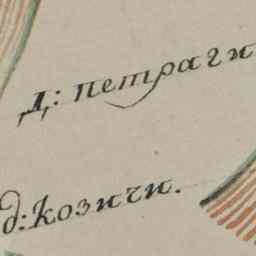 Д: петраги
д: козичи.